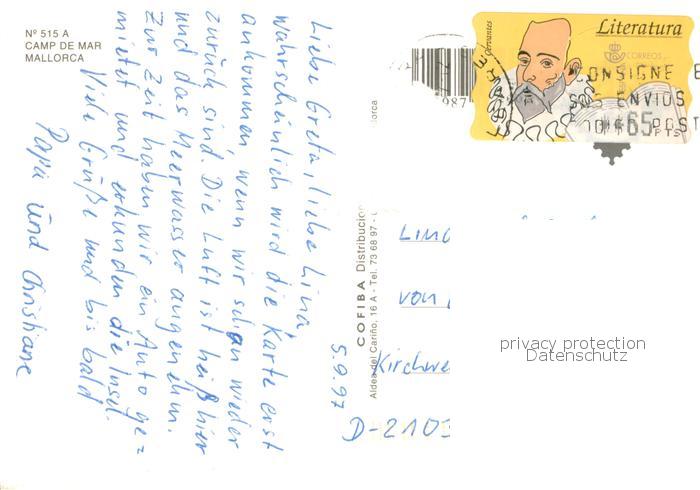 Nº 515 A
CAMP DE MAR
MALLORCA
5.9.97
Liebe Greta, liebe Lina,
wahrscheinlich wird die Karte erst
ankommen, wenn wir schon wieder
zurück sind. Die Luft ist heiß hier
und das Meerwasser angenehm.
Zur Zeit haben wir ein Auto ge=
mietet und erkunden die Insel.
Viele Grüße und bis bald
Papa und Christiane
COFIBA Distribucion
Aldea del Cariño, 16 A - Tel. 73 68 97 -
orca
987
Cervantes
Literatura
CORREOS
ONSIGNE
ENVIOS
65 PTS
POST
von
Kirchwe
D-2103
privacy protection
Datenschutz